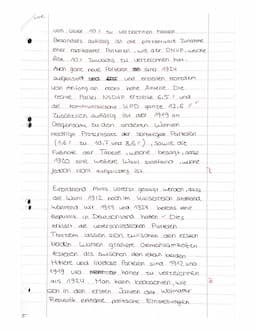 von über 10% zu verzeichnen haben.
Besonders auffällig ist die prozentuale Zunahme
einer radikaleren Parteien, wie der DNVP, welche
fast 10% Zuwachs zu verzeichnen hat.
Auch ganz neue Parteien sind 1924
aufgestellt und erzielen trotzdem
von Anfang an mehr hohe Anteile. Die
rechte Partei NSDAP erzielte 6,5% und
die kommunistische KPD ganze 12,6%.
Zusätzlich auffällig ist der 1919 im
Gegensatz zu den anderen Wahlen
niedrige Prozentsatz der sonstigen Parteien
(1,6% zu 10,7 und 8,6%), sowie die
Fußnote der Tabelle, welche besagt, dass
1920 eine weitere Wahl stattfand, welche
jedoch nicht aufgelistet ist.
Einordnend muss gesagt werden, dass
die Wahl 1912 noch im Kaiserreich stattfand,
während wir 1919 und 1924 bereits eine
Republik in Deutschland hatten. Dies
erklärt die unterschiedlichen Parteien.
Trotzdem lassen sich zwischen den ersten
beiden Wahlen größere Gemeinsamkeiten
feststellen als zwischen den letzten beiden.
Mittlere und liberale Parteien sind 1912 und
1919 und höher zu verzeichnen
als 1924. Man kann beobachten, wie
sich in den ersten Jahren der Weimarer
Republik extreme politische Einstellungen